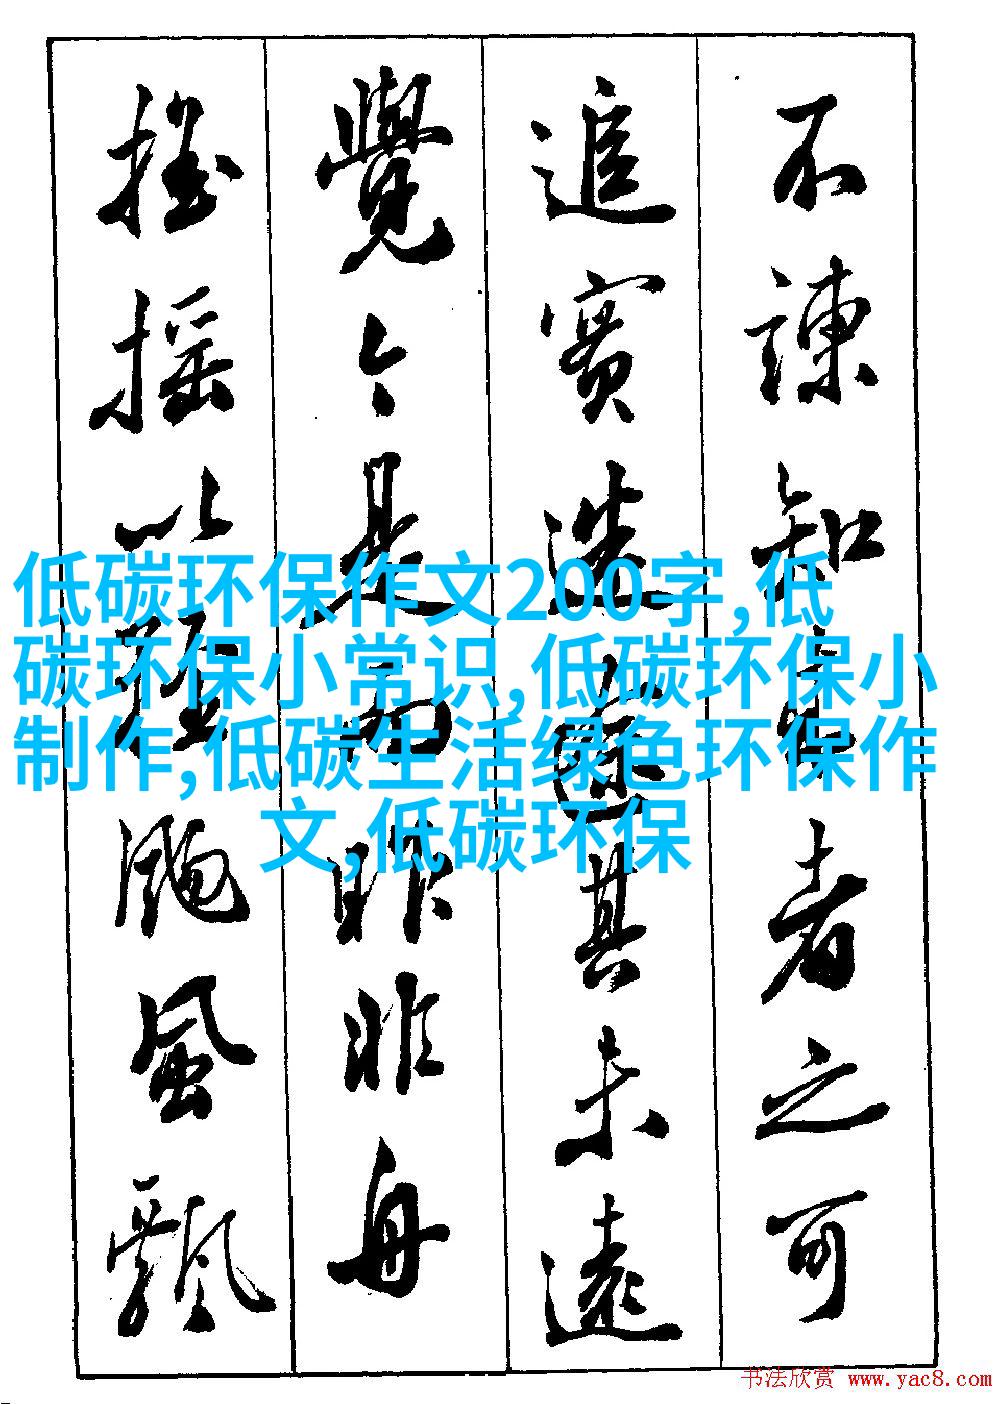 不諫知来者之可
追實迷途其未遠
覺今是而昨非舟
搖摇以輕颺風飄
低碳环保作文200字,低
碳环保小常识,低碳环保小
制作,低碳生活绿色环保作
文,低碳环保
书法欣赏 www.yac8.com